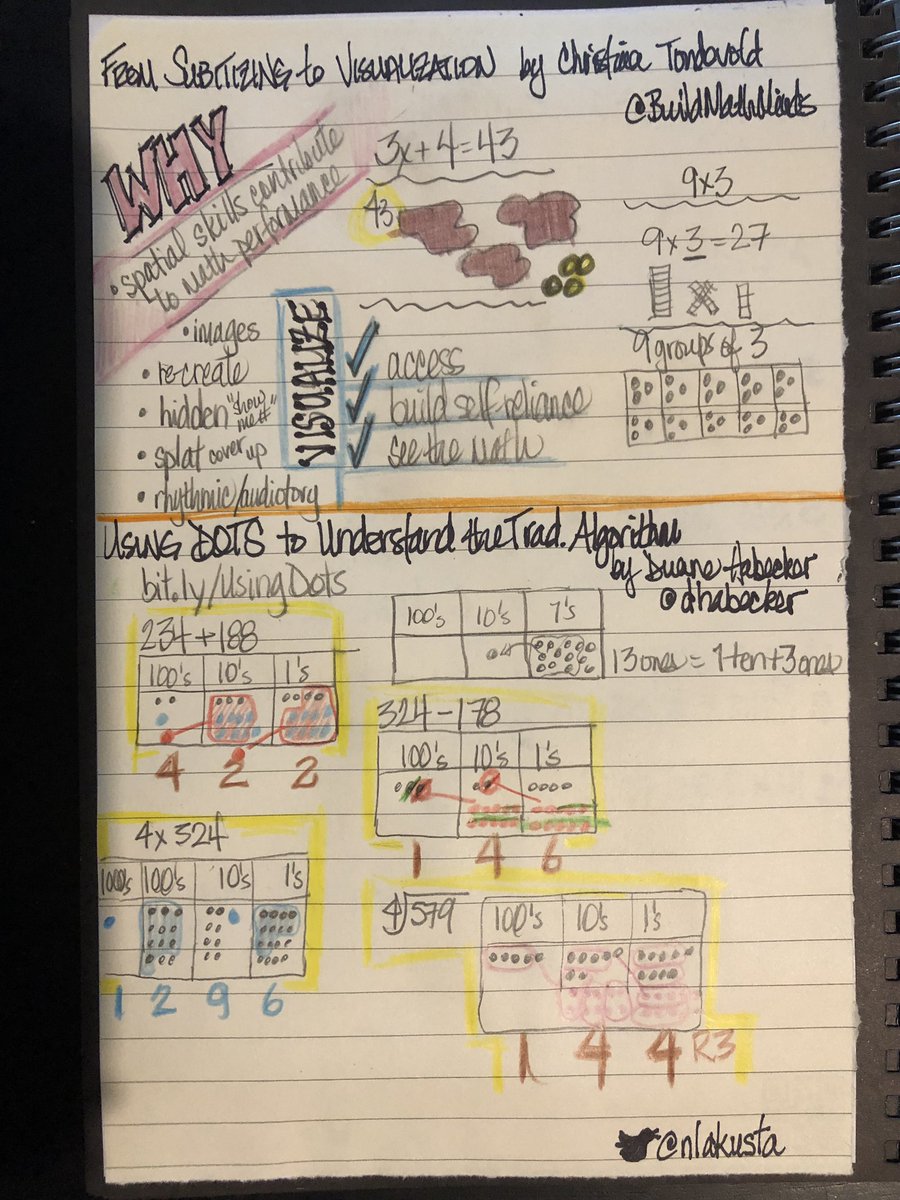 From Subitizing to Visualization by Christina Tondevold
@BuildMathMinds
WHY
• spatial skills contribute
to math performance
• images
• re-create
• hidden "show me #"
• splat cover up
• rhythmic/audiotory
VISUALIZE
access
build self-reliance
see the Math
3x+4=43
43
9x3
9x3=27
9 groups of 3
Using DOTS to Understand the Trad. Algorithm
by Duane Habecker
@dhabecker
bit.ly/UsingDots
100's 10's 1's
13 ones = 1 ten + 3 ones
234+188
100's 10's 1's
4 2 2
324-178
100's 10's 1's
1 4 6
4x324
1000's 100's 10's 1's
1 2 9 6
4)579
100's 10's 1's
1 4 4 R3
@nlakusta